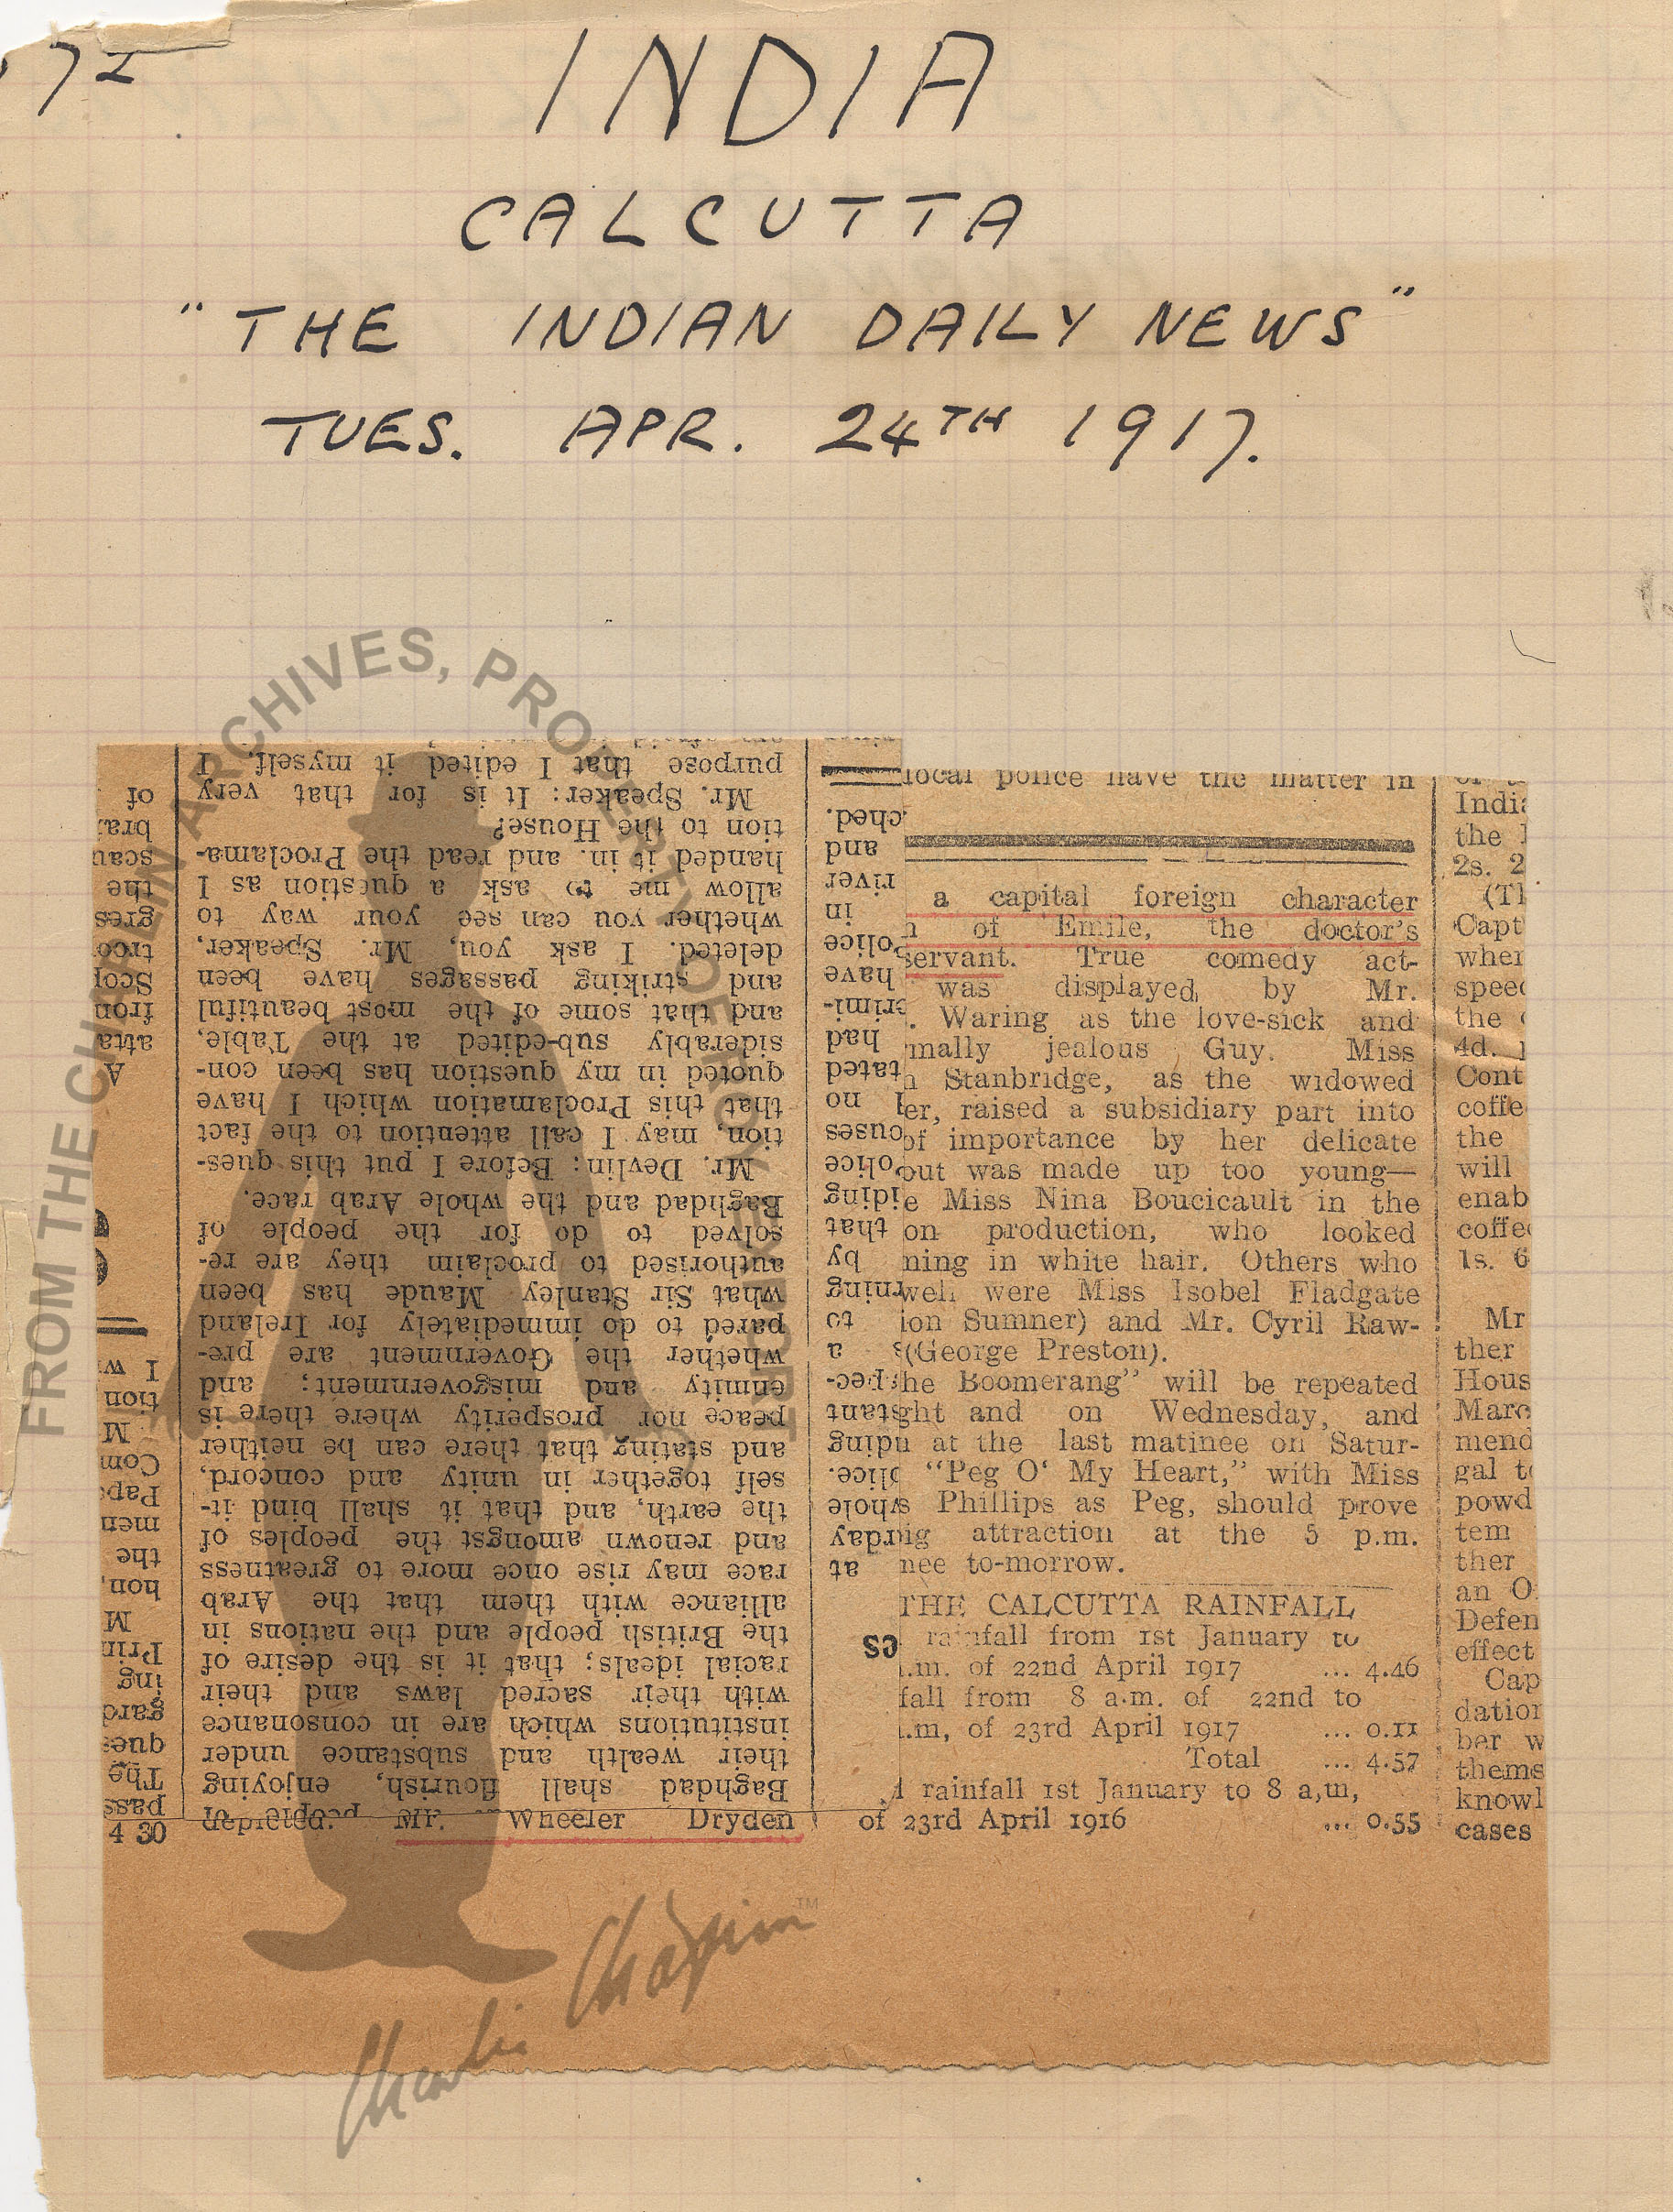 72
INDIA
CALCUTTA
"THE INDIAN DAILY NEWS"
TUES. APR. 24TH 1917.
FROM THE CHAPLIN ARCHIVES, PROPERTY OF ROY EXPORT
purpose that I edited it myself, I
Mr. Speaker: It is for that very
tion to the House?
handed it in. and read the Proclama-
allow me to ask a question as I
whether you can see your way to
deleted. I ask you, Mr. Speaker,
and striking passages have been
and that some of the most beautiful
siderably sub-edited at the Table,
quoted in my question has been con-
that this Proclamation which I have
tion, may I call attention to the fact
Mr. Devlin: Before I put this ques-
Baghdad and the whole Arab race.
solved to do for the people of
authorised to proclaim they are re-
what Sir Stanley Maude has been
pared to do immediately for Ireland
whether the Government are pre-
enmity and misgovernment; and
peace nor prosperity where there is
and stating that there can be neither
self together in unity and concord,
the earth, and that it shall bind it-
and renown amongst the peoples of
race may rise once more to greatness
alliance with them that the Arab
the British people and the nations in
racial ideals; that it is the desire of
with their sacred laws and their
institutions which are in consonance
their wealth and substance under
Baghdad shall flourish, enjoying
Mr. Wheeler Dryden
4 30
of
bra
scau
the
gres
troo
Scop
from
atta
A
I w
tion
M
Com
Pap
men
the
hon,
M
Prin
ing
gard
ques
The
pass
ched.
and
river
in
police
have
crimi-
had
tated
no
ouses
olice
iding
that
by
rning
to
a
pec-
stant
nding
olice.
whole
rday
at
es
local police have the matter in
a capital foreign character
of Emile, the doctor's
servant. True comedy act-
was displayed by Mr.
. Waring as the love-sick and
mally jealous Guy. Miss
Stanbridge, as the widowed
er, raised a subsidiary part into
of importance by her delicate
out was made up too young—
e Miss Nina Boucicault in the
on production, who looked
ning in white hair. Others who
well were Miss Isobel Fladgate
ion Sumner) and Mr. Cyril Raw-
(George Preston).
he Boomerang" will be repeated
ght and on Wednesday, and
at the last matinee on Satur-
"Peg O' My Heart," with Miss
s Phillips as Peg, should prove
ig attraction at the 5 p.m.
nee to-morrow.
THE CALCUTTA RAINFALL
rainfall from 1st January to
.m. of 22nd April 1917 ... 4.46
fall from 8 a.m. of 22nd to
.m, of 23rd April 1917 ... 0.11
Total ... 4.57
rainfall 1st January to 8 a,m,
of 23rd April 1916 ... 0.55
India
the
2s. 2
(Th
Capt
when
speec
the
4d.
Cont
coffe
the
will
enab
coffe
1s. 6
Mr
ther
Hous
Marc
mend
gal to
powd
tem
ther
an O
Defen
effect
Cap
datior
ber w
thems
knowl
cases
Charlie Chaplin™